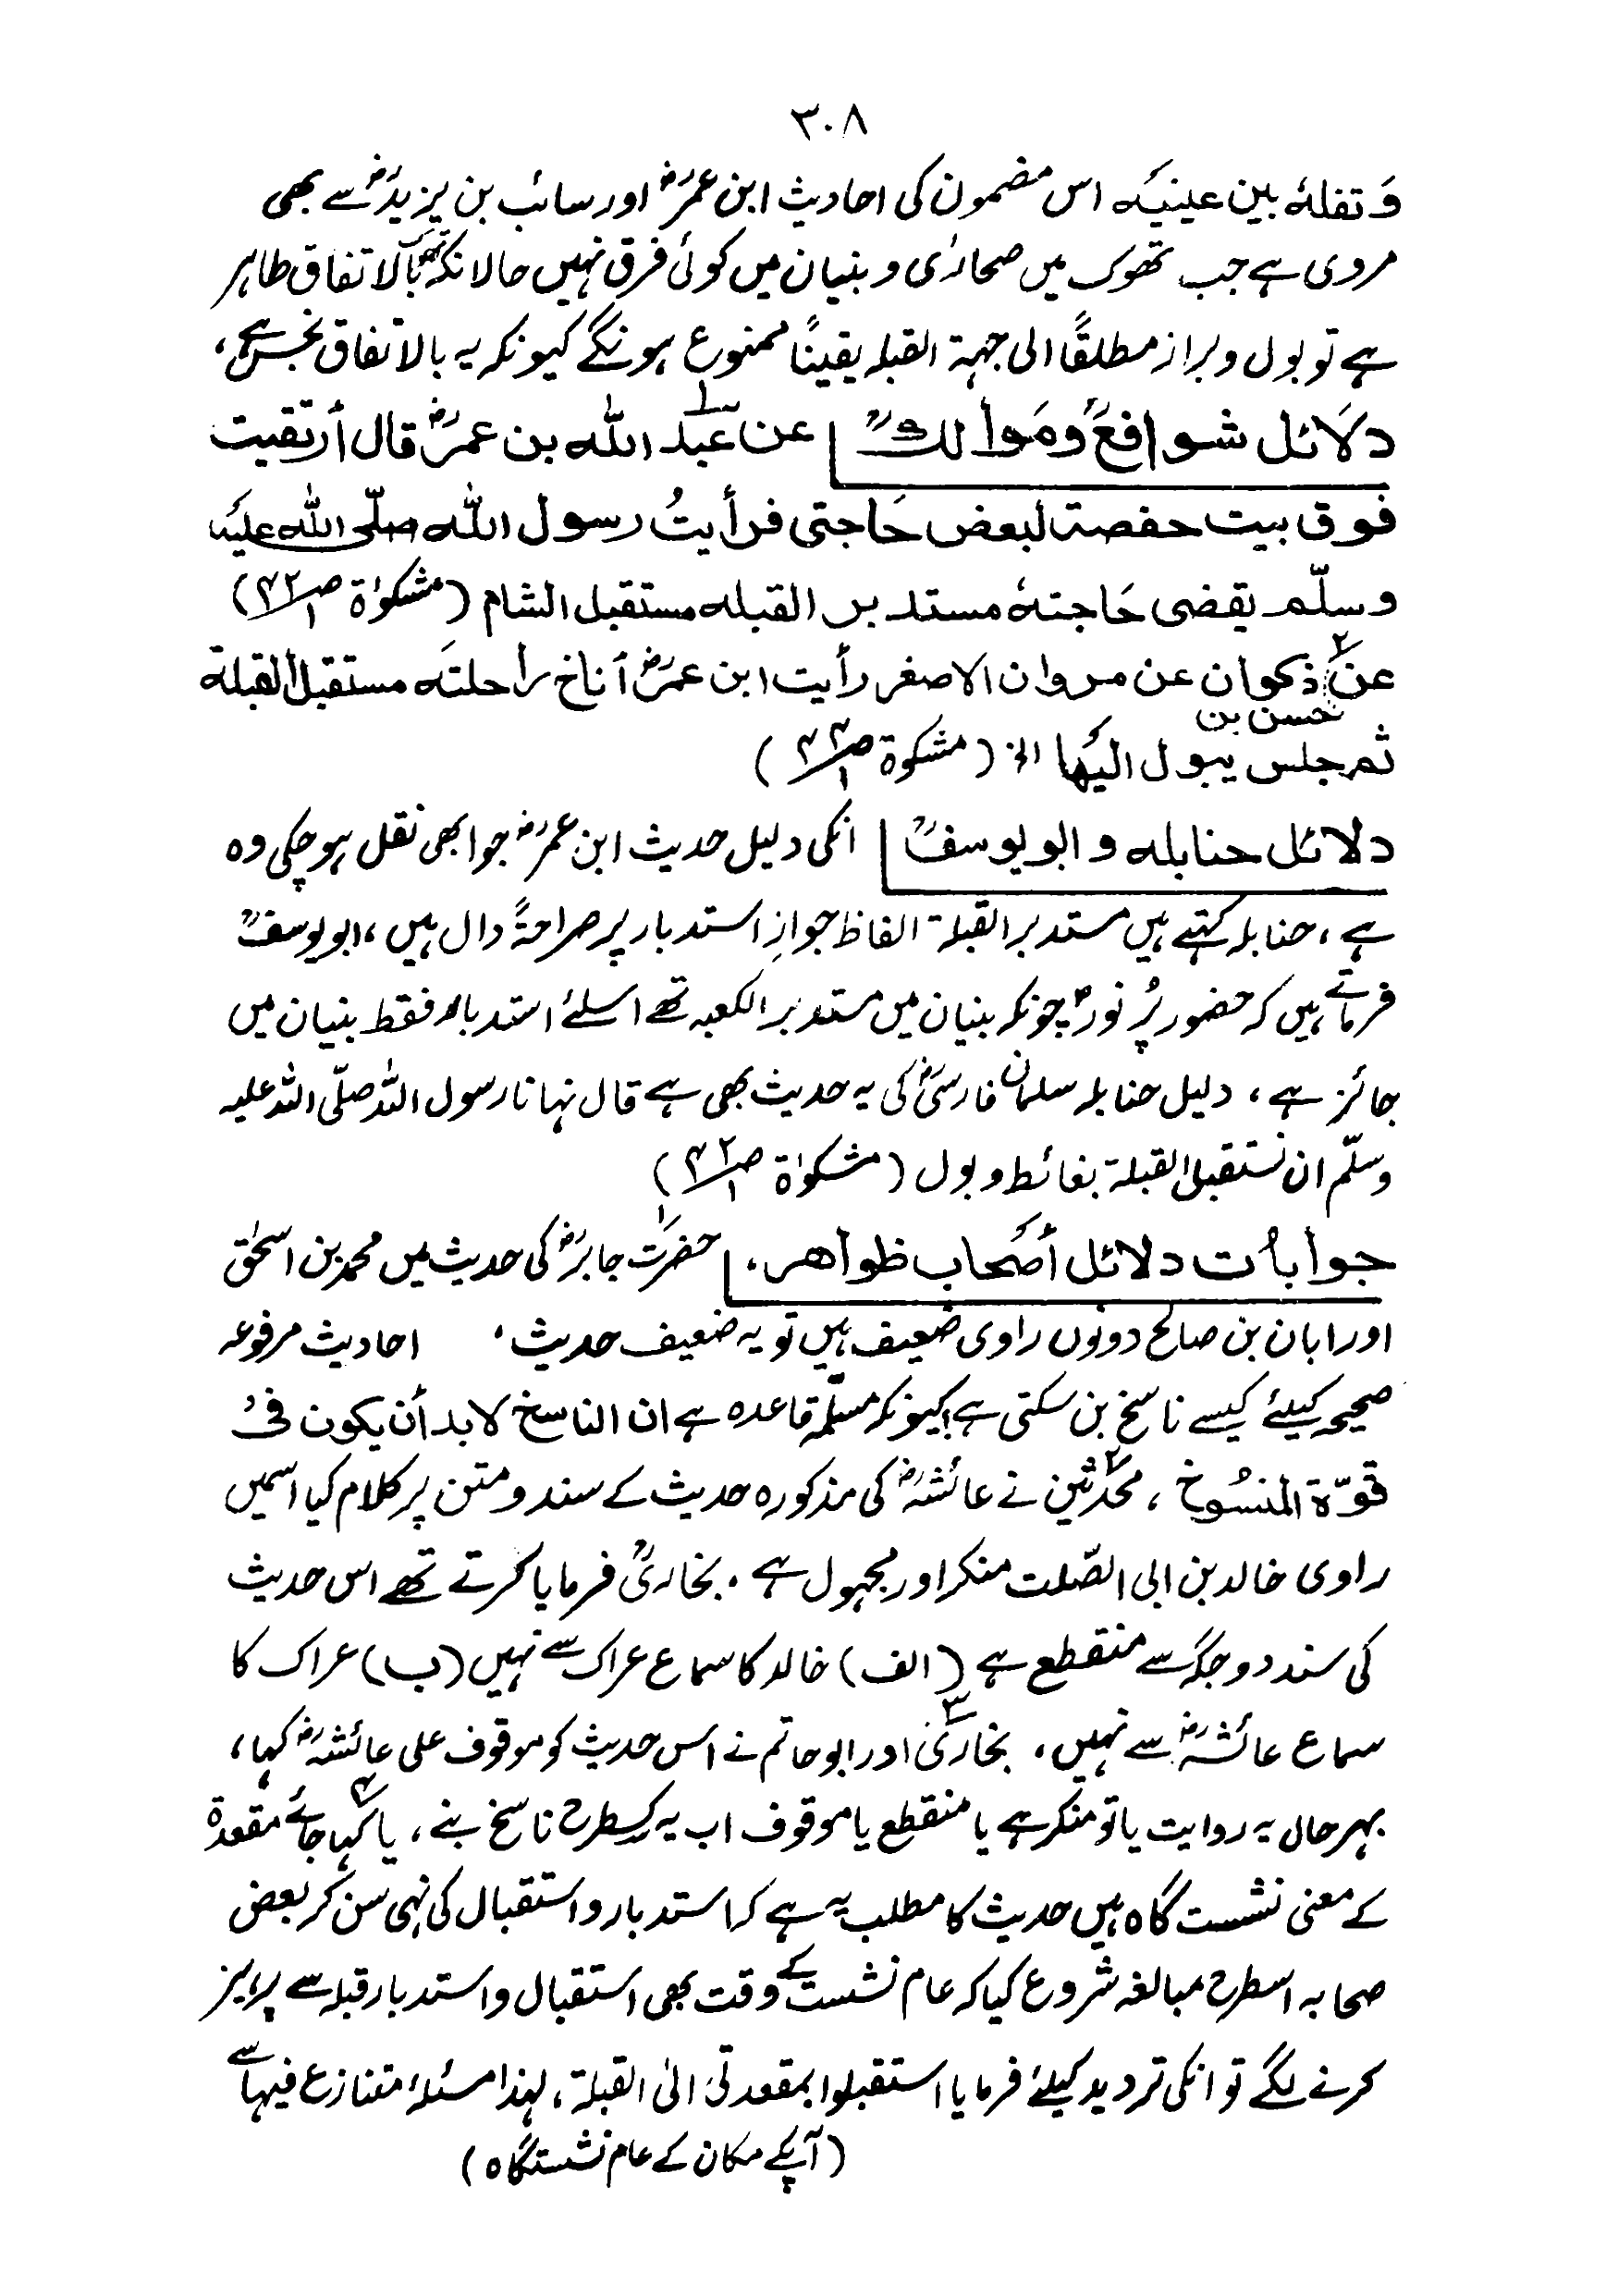 ۳۰۸
وَتفلہٗ بین عینیَہ اس مضمون کی احادیث ابن عمرؓ اور سائب بن یزیدؓ سے بھی
مروی ہے جب تھوک میں صحاری و بنیان میں کوئی فرق نہیں حالانکہ تھوک بالاتفاق طاہر
ہے تو بول و براز مطلقًا الی جہۃ القبلہ یقینًا ممنوع ہونگے کیونکہ یہ بالاتفاق نجس ہے،
دلَائل شوافعؒ وموالکؒ عن عبد اللہ بن عمرؓ قال أرتقیت ۱
فوق بیت حفصۃ لبعض حَاجتی فرأیتُ رسول اللہ صلّی اللہ علیَہ
وسلّم یقضی حَاجتہٗ مستدبر القبلہ مستقبل الشام (مشکوٰۃ ص۴۲/۱)
عن ۲ ذکوان عن مروان الاصغر رأیت ابن عمرؓ أناخ راحلتَہ مستقبل القبلۃ
حسن بن
ثم جلس یبول الیَہا الخ (مشکوۃ ص۴۴/۱)
دلائل حنابلہ و ابو یوسفؒ انکی دلیل حدیث ابن عمرؓ جو ابھی نقل ہوچکی وہ
ہے، حنابلہ کہتے ہیں مستدبر القبلۃ الفاظ جوازِ استدبار پر صراحۃً دال ہیں، ابو یوسفؒ
فرماتے ہیں کہ حضور پُر نورؐ چونکہ بنیان میں مستدبر الکعبہ تھے اسلئے استدبار فقط بنیان میں
جائز ہے، دلیل حنابلہ سلمان فارسیؓ کی یہ حدیث بھی ہے قال نہانا رسول اللہ صلّی اللہ علیہ
وسلّم ان نستقبل القبلۃ بغائط وبول (مشکوٰۃ ص۴۲/۱)
جوابات دلائل أصَحاب ظواهر، حضرت ۱ جابرؓ کی حدیث میں محمد بن اسحٰق
اور ابان بن صالح دونوں راوی ضعیف ہیں تو یہ ضعیف حدیث، احادیث مرفوعہ
صحیحہ کیلئے کیسے ناسخ بن سکتی ہے؟ کیونکہ مسلّمہ قاعدہ ہے ان الناسخ لا بد أن یکون فی
قوّۃ المنسُوخ، ۲ محدّثین نے عائشہؓ کی مذکورہ حدیث کے سند و متن پر کلام کیا اسمیں
راوی خالد بن ابی الصّلت منکر اور مجہول ہے، بخاریؒ فرمایا کرتے تھے اس حدیث
کی سند دو جگہ سے منقطع ہے (الف) خالد کا سماع عراک سے نہیں (ب) عراک کا
سماع عائشہؓ سے نہیں، ۳ بخاریؒ اور ابو حاتم نے اس حدیث کو موقوف علی عائشہؓ کہا،
بہرحال یہ روایت یا تو منکر ہے یا منقطع یا موقوف اب یہ کسطرح ناسخ بنے، ۴ یا کہا جائے مقعدۃ
کے معنی نشست گاہ ہیں حدیث کا مطلب یہ ہے کہ استدبار و استقبال کی نہی سن کر بعض
صحابہ اسطرح مبالغہ شروع کیا کہ عام نشست کے وقت بھی استقبال و استدبار قبلہ سے پرہیز
کرنے لگے تو انکی تردید کیلئے فرمایا استقبلوا بمقعدتی الی القبلۃ، لہذا مسئلۂ متنازع فیہا سے
(آپکے مکان کے عام نشستگاہ)